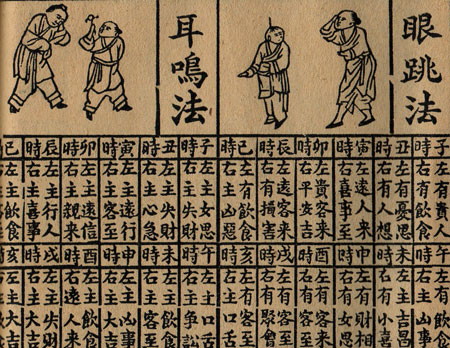 眼跳法
子
左有貴人
右有飲食
丑時
左有憂思
右有人想
寅時
左遠人來
右喜事至
卯時
左貴客來
右平安吉
辰時
左遠客來
右有損害
巳時
左有飲食
右主凶惡
午
未時
左主吉昌
右有小喜
申時
左有財相
右有女思
酉時
左有客至
戌時
左有客至
右有聚會
亥時
左有客至
右主口舌
耳鳴法
子時
左主女思
右主失財
丑時
左主失財
右主心急
寅時
左主遠行
右主客至
卯時
左主遠信
右主親來
辰時
左主行人
右主喜事
巳
左主飲食
午時
左主口舌
右主爭訟
未時
申時
左主凶事
右主大吉
酉時
左主飲食
右遠人來
戌時
左主失財
右主大吉
亥